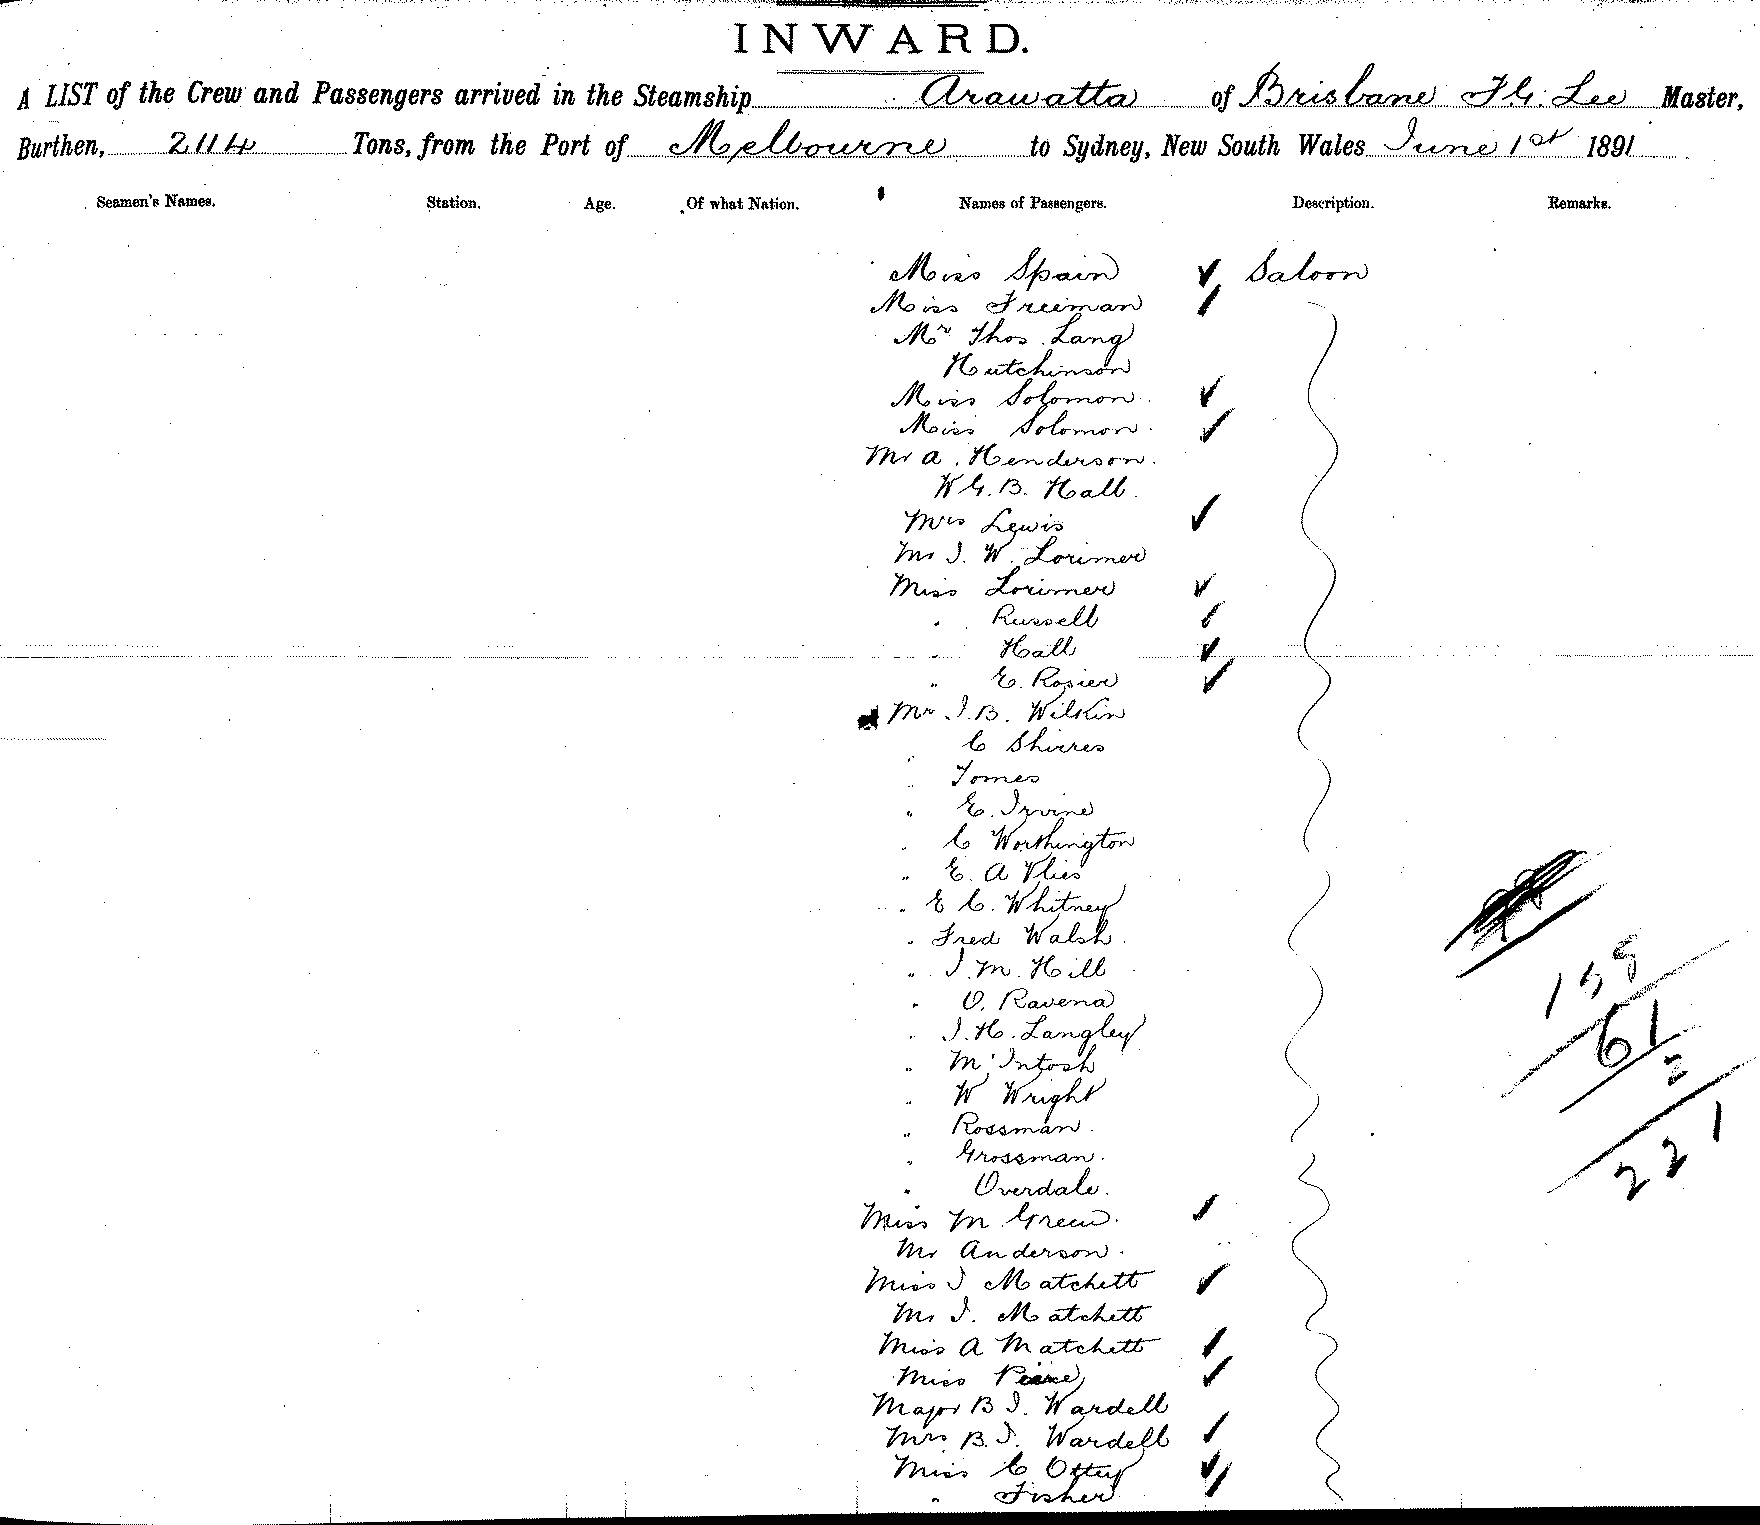 INWARD.
A LIST of the Crew and Passengers arrived in the Steamship Arawatta of Brisbane F.G. Lee Master,
Burthen, 2114 Tons, from the Port of Melbourne to Sydney, New South Wales June 1st 1891
Seamen's Names. Station. Age. Of what Nation. Names of Passengers. Description. Remarks.
Miss Spain Saloon
Miss Freeman
Mr Thos. Lang
Hutchinson
Miss Solomon
Miss Solomon
Mr A. Henderson
W G. B. Hall
Mrs Lewis
Mr J. W. Lorimer
Miss Lorimer
" Russell
" Hall
" E. Rosier
Mr J. B. Wilkin
C Shirres
" Tomes
" E. Irvine
" C Worthington
" E. A Vlies
" E C. Whitney
" Fred Walsh
" J. M. Hill
" O. Ravena
" J. H. Langley
" McIntosh
" W Wright
" Rossman
" Grossman
" Overdale
Miss M Green
Mr Anderson
Miss J Matchett
Mr J. Matchett
Miss A Matchett
Miss
Major B J. Wardell
Mrs B. J. Wardell
Miss C Ottey
" Fisher
158
61
2
221